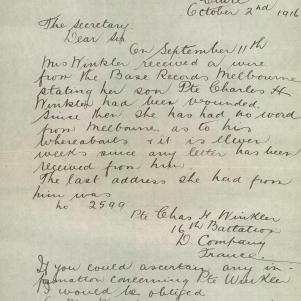 October 2nd 1916
The Secretary
Dear Sir
On September 11th
Mrs Winkler received a wire
from the Base Records Melbourne
stating her son Pte Charles H
Winkler had been wounded.
Since then she has had no word
from Melbourne as to his
whereabouts & it is eleven
weeks since any letter has been
received from him
The last address she had from
him was
No 2599
Pte Chas H Winkler
16th Battalion
D. Company
France
If you could ascertain any in-
formation concerning Pte Winkler
I would be obliged